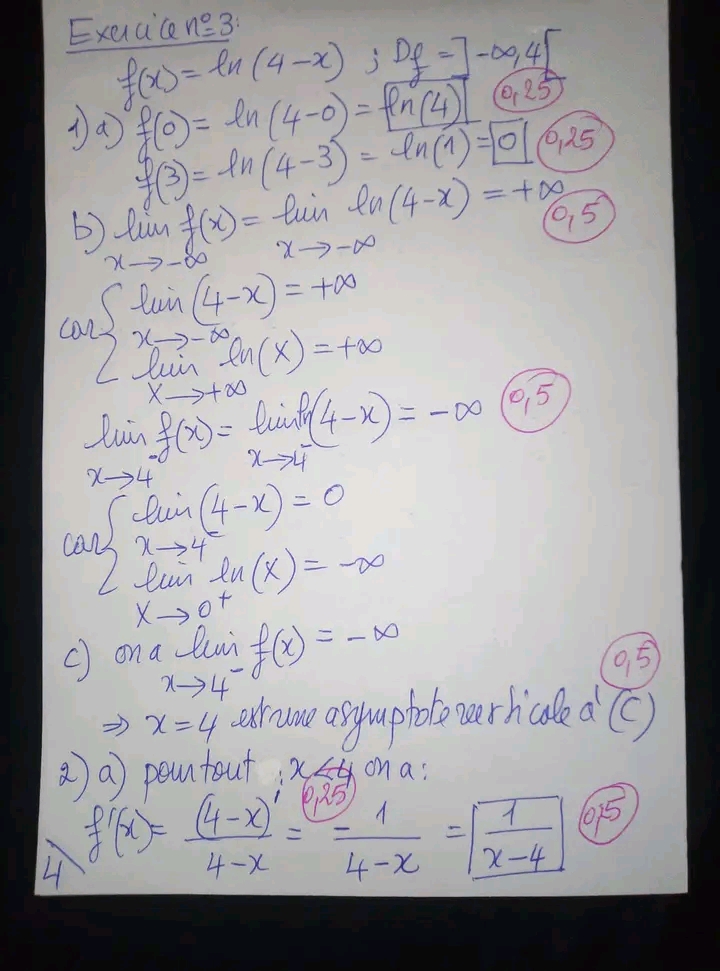 Exercice n°=3:
f(x) = ln(4-x) ; Df = ]-∞,4[
1) a) f(0) = ln(4-0) = ln(4) 0,25
f(3) = ln(4-3) = ln(1) = 0 0,25
b) lim f(x) = lim ln(4-x) = +∞ 0,5
x→-∞ x→-∞
car { lim (4-x) = +∞
x→-∞
lim ln(X) = +∞
X→+∞
lim f(x) = lim ln(4-x) = -∞ 0,5
x→4⁻ x→4⁻
car { lim (4-x) = 0
x→4⁻
lim ln(X) = -∞
X→0⁺
c) on a lim f(x) = -∞
x→4⁻ 0,5
⇒ x=4 est une asymptote verticale à (C)
2) a) pour tout ; x<4 on a:
0,25
f'(x) = (4-x)' / 4-x = - 1 / 4-x = 1 / x-4 0,5
4